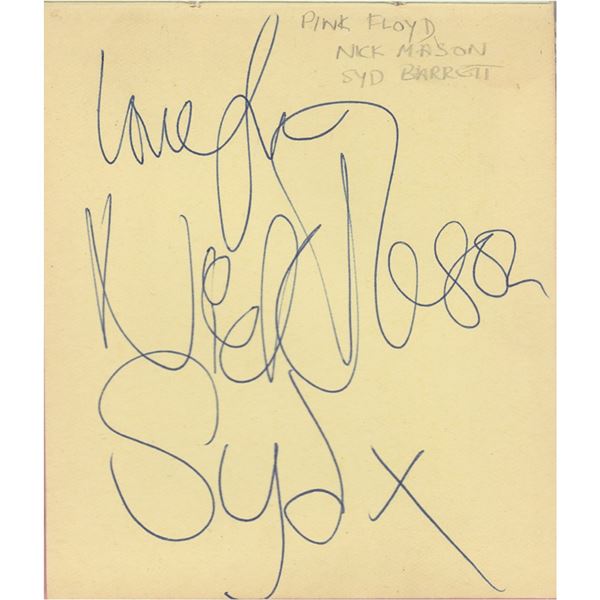 PINK FLOYD
NICK MASON
SYD BARRETT
love from
Nick Mason
Syd x